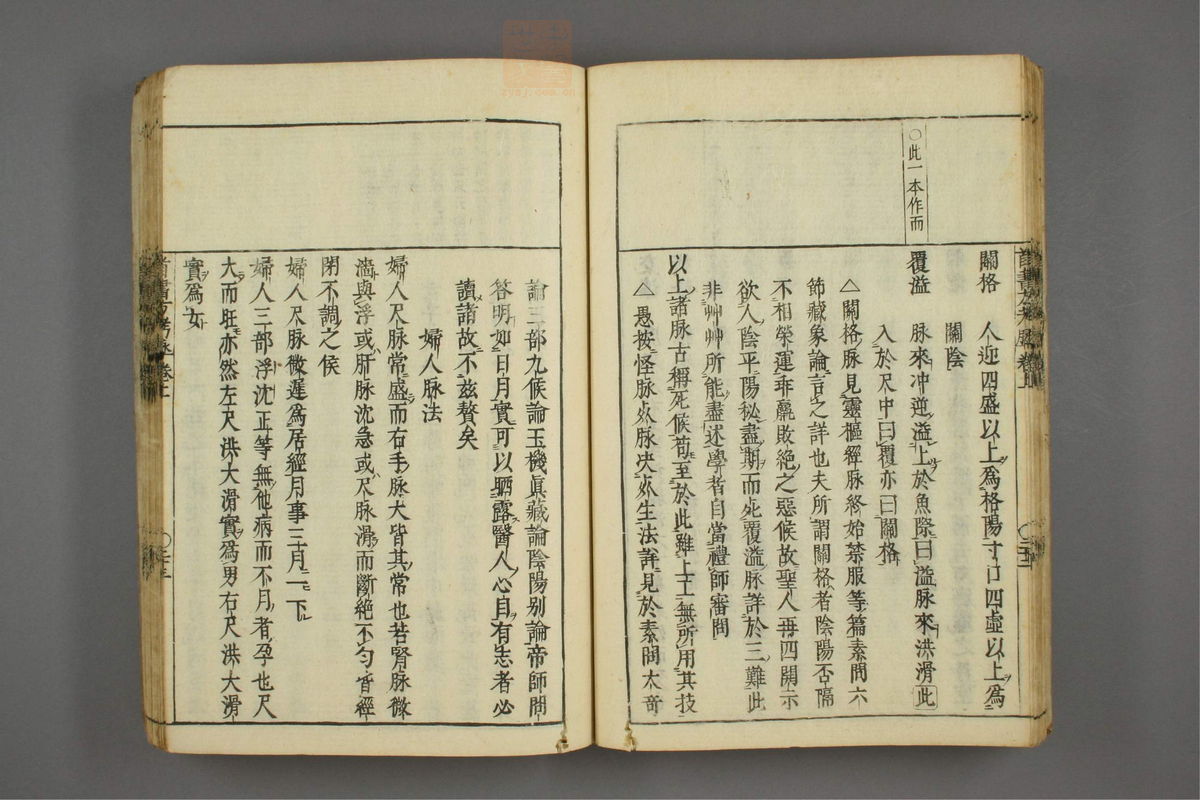 ○此一本作而
關格　人迎四盛以上爲格陽寸口四虛以上爲
關陰
覆溢　脉來冲逆溢上於魚際曰溢脉來洪滑此
入於尺中曰覆亦曰關格
△關格脉見靈樞經脉終始禁服等篇素問六
節藏象論言之詳也夫所謂關格者陰陽否隔
不相榮運乖羸敗絶之惡候故聖人再四開示
欲人陰平陽秘盡期而死覆溢脉詳於三難此
非艸艸所能盡述學者自當禮師審問
以上諸脉古稱死候苟至於此雖上工無所用其技
△愚按怪脉死脉决死生法詳見於素問大奇
論三部九候論玉機眞藏論陰陽别論帝師問
答明如日月實可以晒露醫人心目有志者必
讀諸故不兹贅矣
婦人脉法
婦人尺脉常盛而右手脉大皆其常也若腎脉微
濇與浮或肝脉沈急或尺脉滑而斷絶不匀皆經
閉不調之候
婦人尺脉微遲爲居經月事三月一下
婦人三部浮沈正等無他病而不月者孕也尺
大而旺亦然左尺洪大滑實爲男右尺洪大滑
實爲女